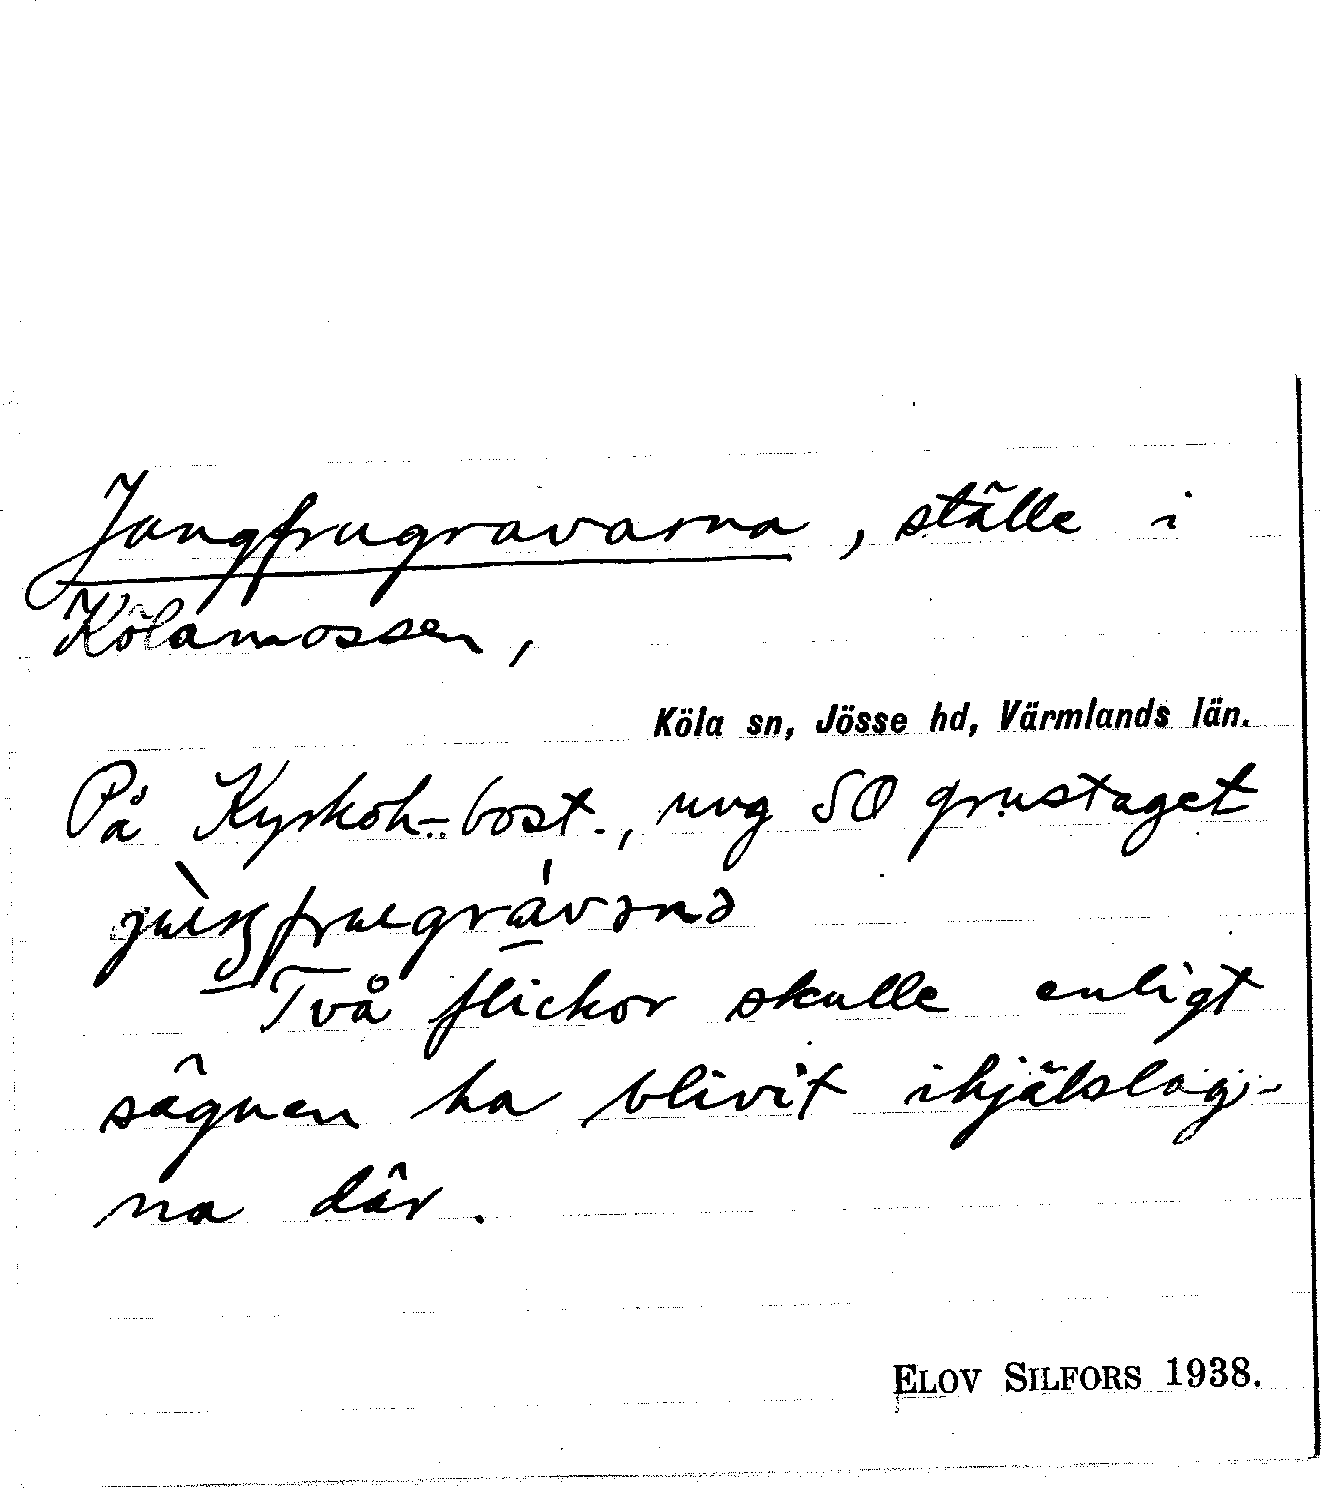 Jungfrugravarna, ställe i
Kölamossen,
Köla sn, Jösse hd, Värmlands län.
På Kyrkoh-bost., uvg SO grustaget
Två flickor skulle enligt
sägnen ha blivit ihjälslag-
na där.
ELOV SILFORS 1938.